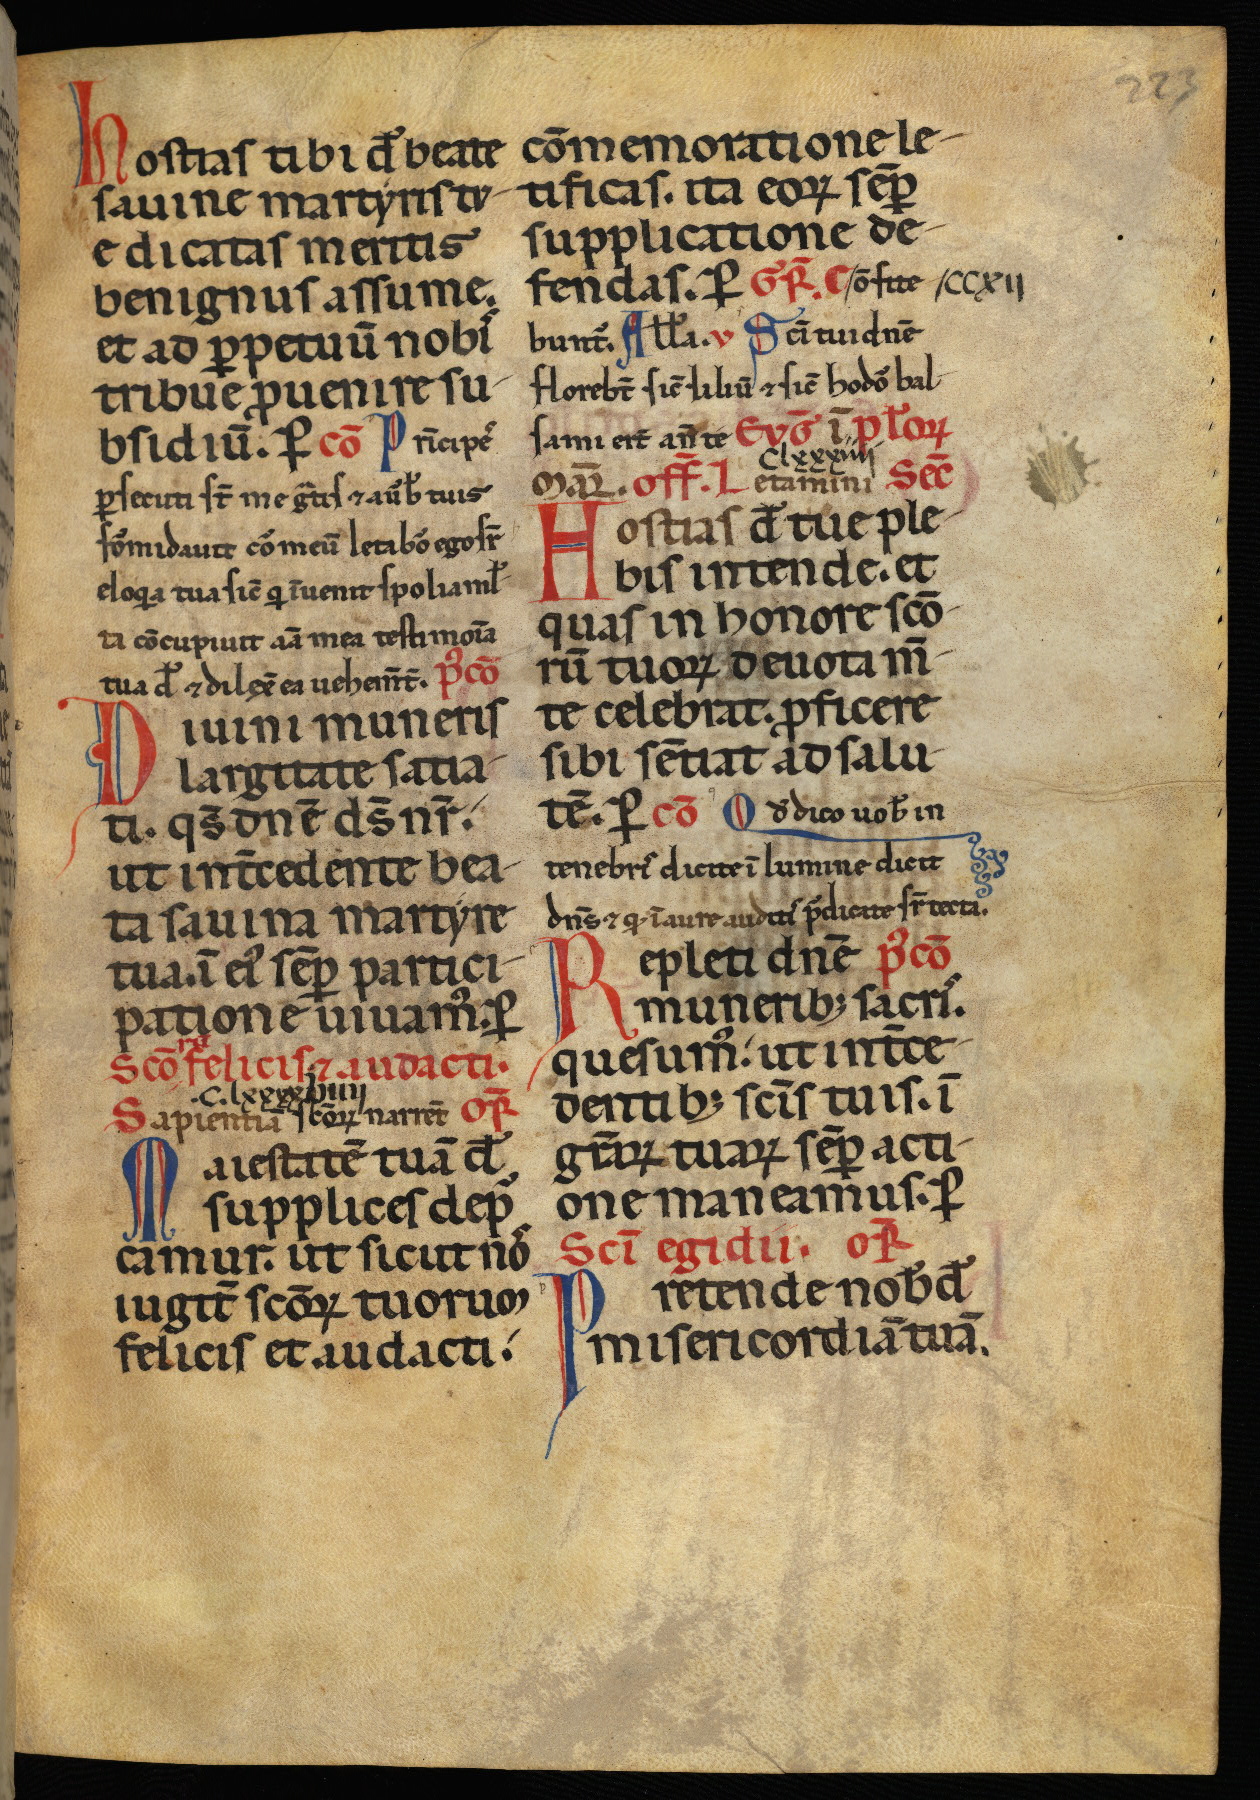 223
hostias tibi d̄s beate
sauine martyris tu-
e dicatas meritis
benignus assume.
et ad ꝑpetuū nobis
tribue ꝓuenire su-
bsidiū. P̱ cō Prīcipeˢ
ꝑsecuti st̄ me gͣtis ⁊ a ūb̄ tuis
cō meū letabor ego sr̄
eloqͣa tua sic̄ qͥ īuenit spolia ml̄-
ta cōcupiuit aā mea testimoīa
tua d̄s ⁊ dilex̄ ea uehem̄t̄. p̄cō
Diuini muneris
largitate satia-
ti. qs̄ dn̄e ds̄ nr̄.
ut int̄cedente bea-
ta sauina martyre
tua. ī eiˢ sēꝑ partici-
patione uiuam᷒. P̱
Scōrū felicis ⁊ audacti.
C. lxxxxviiii
Sapientiā scōꝝ narrēt or̄
Maiestatē tuā d̄s
supplices dep̄-
camur. ut sicut nos
iugit̄ scōꝝ tuorum
felicis et audacti.
cōmemoratione le-
tificas. ita eoꝝ sēꝑ
supplicatione de-
fendas. P̱ Gr̄. Cōfite /CCXII
bunt᷒. All̄a. v Sc̄i tui dn̄e
florebt̄ sic̄ liliū ⁊ sic̄ hodor bal-
sami ert̄ an̄ te Evḡ ī pl̄oꝝ
Clxxxiiii
mar̄. off̄. Letamini Sec̄
Hostias d̄s tue ple-
bis intende. et
quas in honore scō-
rū tuoꝝ deuota m̄-
te celebrat. ꝓficere
sibi sētiat ad salu-
tē. P̱ cō Qd̄ dico uob̄ in
tenebris dicite ī lumine dicit
dn̄s ⁊ qͥ ī aure auditis p̄dicate sr̄ tecta.
Repleti dn̄e p̄cō
munerib; sacris.
quesum᷒. ut int̄ce-
dentib; scīs tuis. ī
gr̄aꝝ tuaꝝ sēꝑ acti-
one maneamus. P̱
Sc̄i egidii. or̄
Pretende nob̄ d̄s
misericordiā tuā.